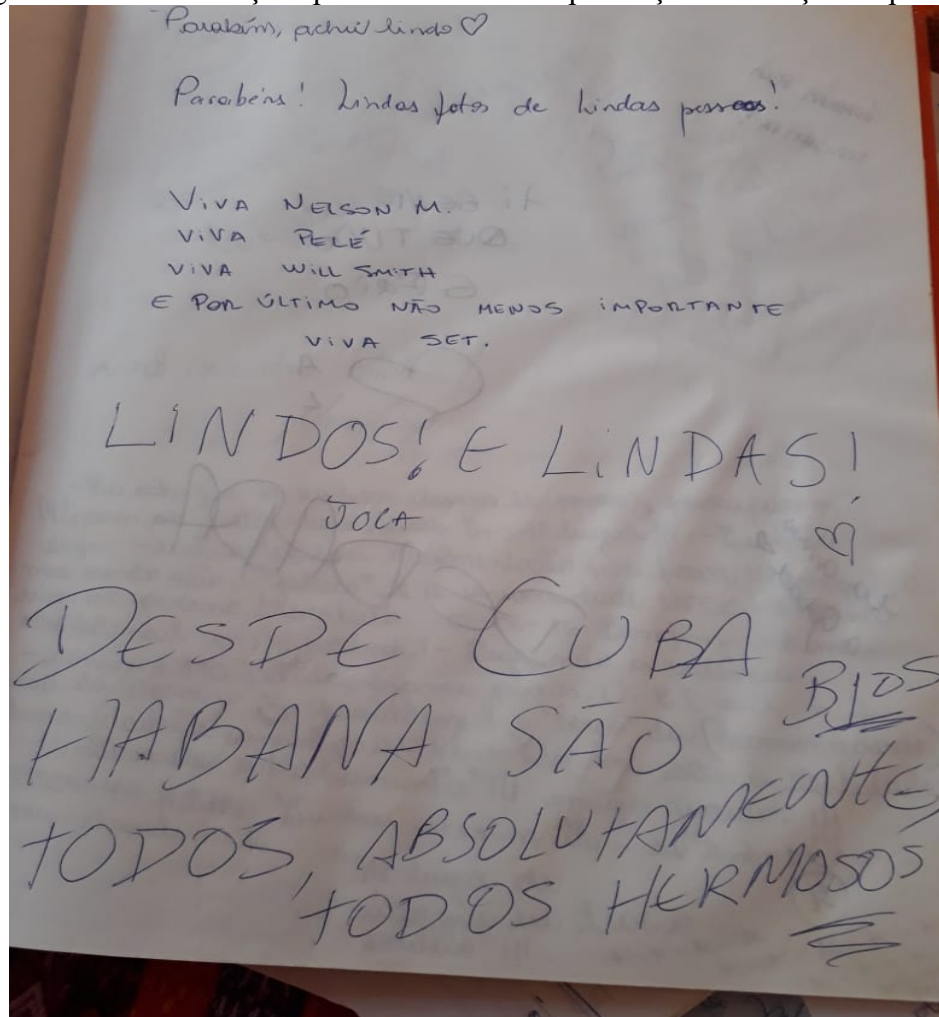 Parabém, achei lindo ♡
Parabéns! Lindas fotos de lindas pessoas!
VIVA NELSON M.
VIVA PELÉ
VIVA WILL SMITH
E POR ÚLTIMO NÃO MENOS IMPORTANTE
VIVA SET.
LINDOS! E LINDAS!
JOCA ♡
DESDE CUBA
BJOS
HABANA SÃO
TODOS, ABSOLUTAMENTE,
TODOS HERMOSOS